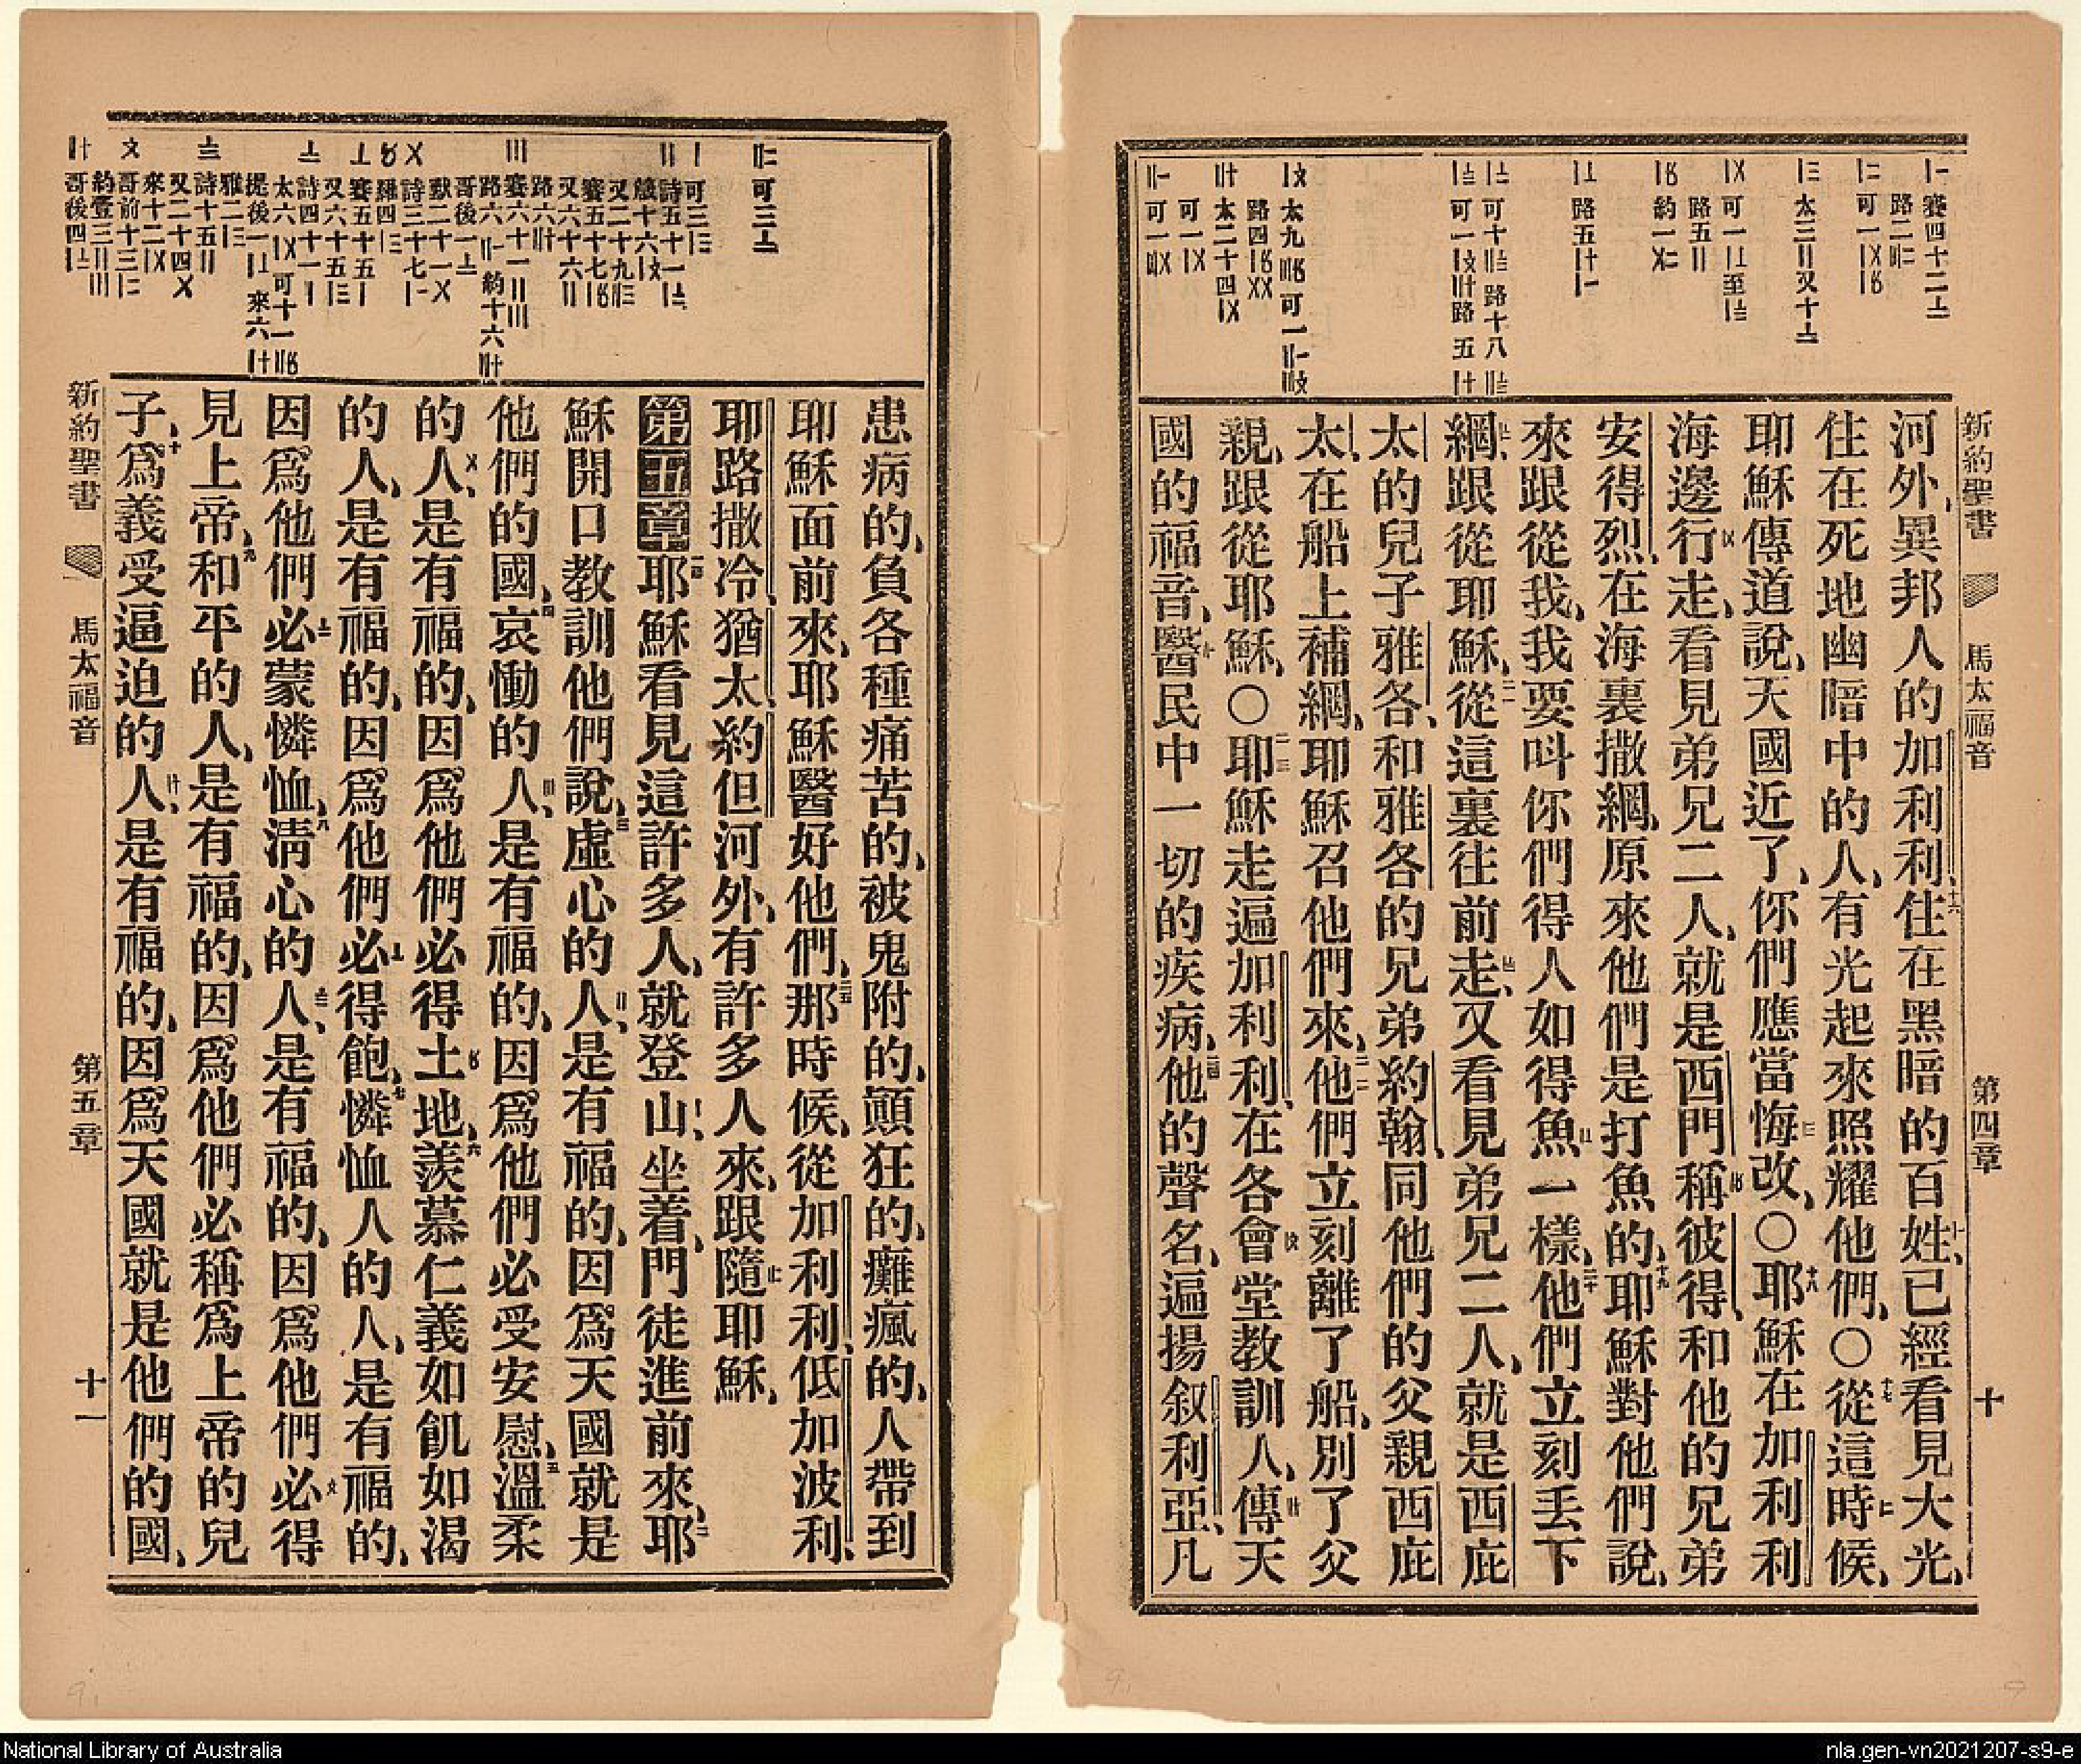 新約聖書 馬太福音 第四章 十
河外、異邦人的加利利、住在黑暗的百姓、已經看見大光、
住在死地幽暗中的人、有光起來照耀他們、〇從這時候、
耶穌傳道說、天國近了、你們應當悔改、〇耶穌在加利利
海邊行走、看見弟兄二人、就是西門稱彼得、和他的兄弟
安得烈、在海裏撒網、原來他們是打魚的、耶穌對他們說、
來跟從我、我要呌你們得人如得魚一樣、他們立刻丢下
網、跟從耶穌、從這裏往前走、又看見弟兄二人、就是西庇
太的兒子雅各、和雅各的兄弟約翰、同他們的父親西庇
太、在船上補網、耶穌召他們來、他們立刻離了船、別了父
親、跟從耶穌、〇耶穌走遍加利利、在各會堂教訓人、傳天
國的福音、醫民中一切的疾病、他的聲名、遍揚叙利亞、凡
患病的、負各種痛苦的、被鬼附的、顚狂的、癱瘋的、人帶到
耶穌面前來、耶穌醫好他們、那時候、從加利利、低加波利、
耶路撒冷、猶太、約但河外、有許多人來、跟隨耶穌、
第五章耶穌看見這許多人、就登山、坐着、門徒進前來、耶
穌開口教訓他們說、虛心的人、是有福的、因爲天國就是
他們的國、哀慟的人、是有福的、因爲他們必受安慰、溫柔
的人、是有福的、因爲他們必得土地、羨慕仁義如飢如渴
的人、是有福的、因爲他們必得飽、憐恤人的人、是有福的、
因爲他們必蒙憐恤、淸心的人、是有福的、因爲他們必得
見上帝、和平的人、是有福的、因爲他們必稱爲上帝的兒
子、爲義受逼迫的人、是有福的、因爲天國就是他們的國、
新約聖書 馬太福音 第五章 十一
National Library of Australia
nla.gen-vn2021207-s9-e